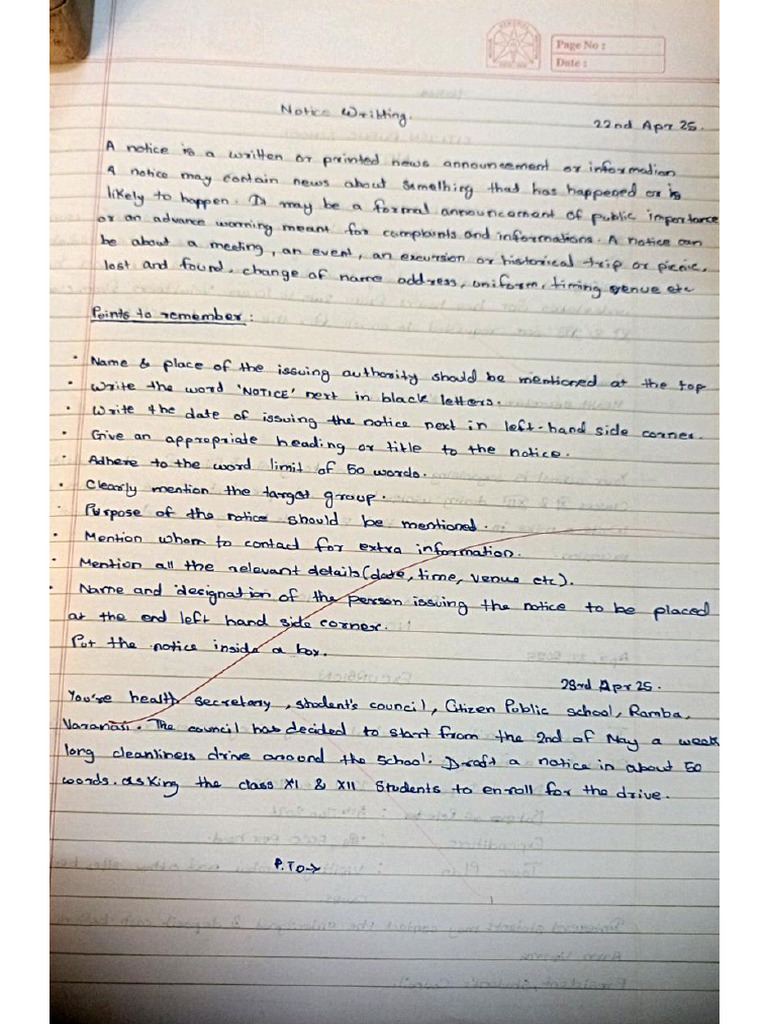 Page No :
Date :
Notice Writting.
22nd Apr 25.
A notice is a written or printed news announcement or information
A notice may contain news about something that has happened or is
likely to happen. It may be a formal announcement of public importance
or an advance warning meant for complaints and informations. A notice can
be about a meeting, an event, an excursion or historical trip or picnic,
lost and found, change of name address, uniform, timing venue etc
Points to remember :
• Name & place of the issuing authority should be mentioned at the top
• Write the word 'NOTICE' next in black letters.
• Write the date of issuing the notice next in left-hand side corner.
• Give an appropriate heading or title to the notice.
• Adhere to the word limit of 50 words.
• Clearly mention the target group.
• Purpose of the notice should be mentioned.
• Mention whom to contact for extra information.
• Mention all the relevant details (date, time, venue etc).
• Name and designation of the person issuing the notice to be placed
at the end left hand side corner.
Put the notice inside a box.
23rd Apr 25.
You're health secretary, student's council, Citizen Public school, Ramba,
Varanasi. The council has decided to start from the 2nd of May a week
long cleanliness drive around the school. Draft a notice in about 50
words. asking the class XI & XII Students to enroll for the drive.
P.T.O→